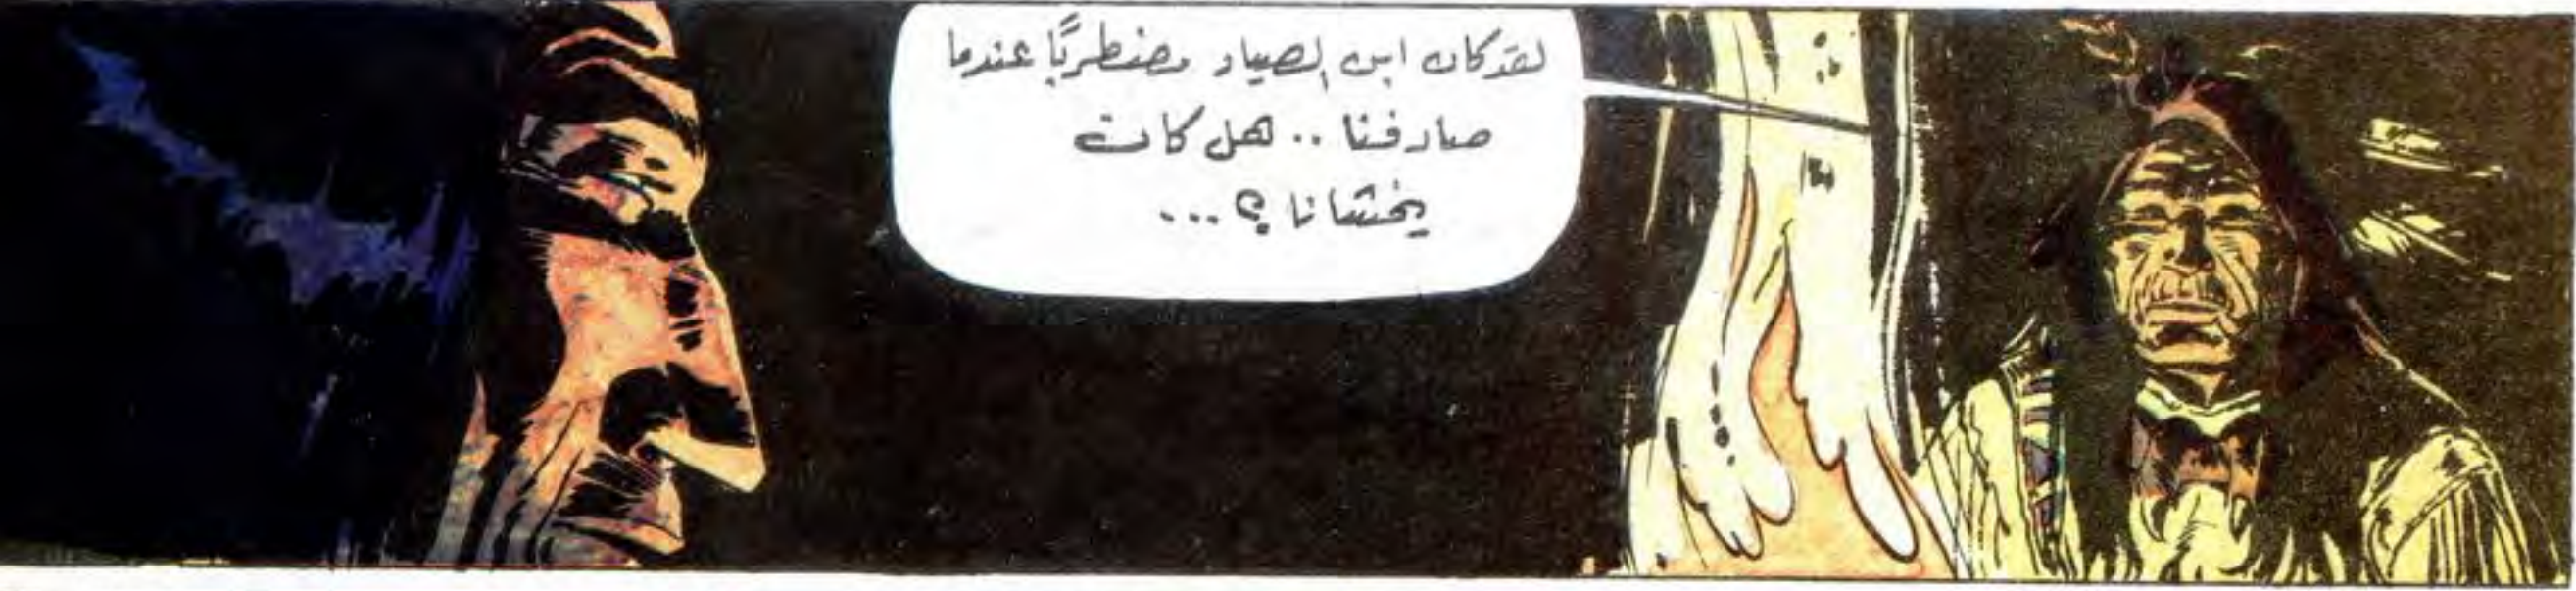 لقد كان ابن الصياد مضطربًا عندما
صادفنا .. هل كان
يخشانا ؟ ...